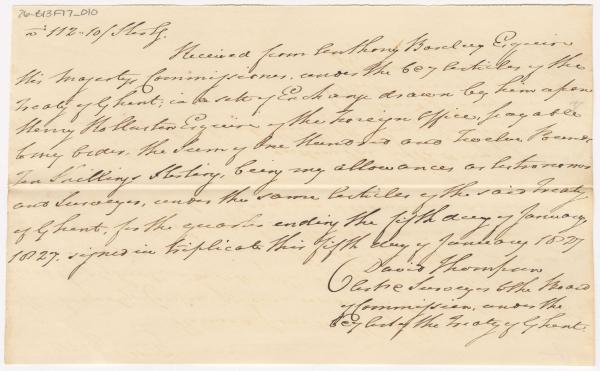 76-B13F17_010
112-10/ Sterlg.
Received from Anthony Barclay Esquire
His Majestys Commissioner, under the 6 & 7 Articles of the
Treaty of Ghent; in a sett of Exchange drawn by him upon
Henry Esquire of the Foreign Office, payable
to my order, the Sum of One Hundred and Twelve Pounds
Ten Shillings Sterling, being my allowances as Astronomer
and Surveyor, under the same Articles of the said Treaty
of Ghent, for the quarter ending the fifth day of January
1827. signed in triplicate this fifth day of January 1827
David Thompson
Surveyor to the Board
of Commission, under the
6 & 7 Art of the Treaty of Ghent.